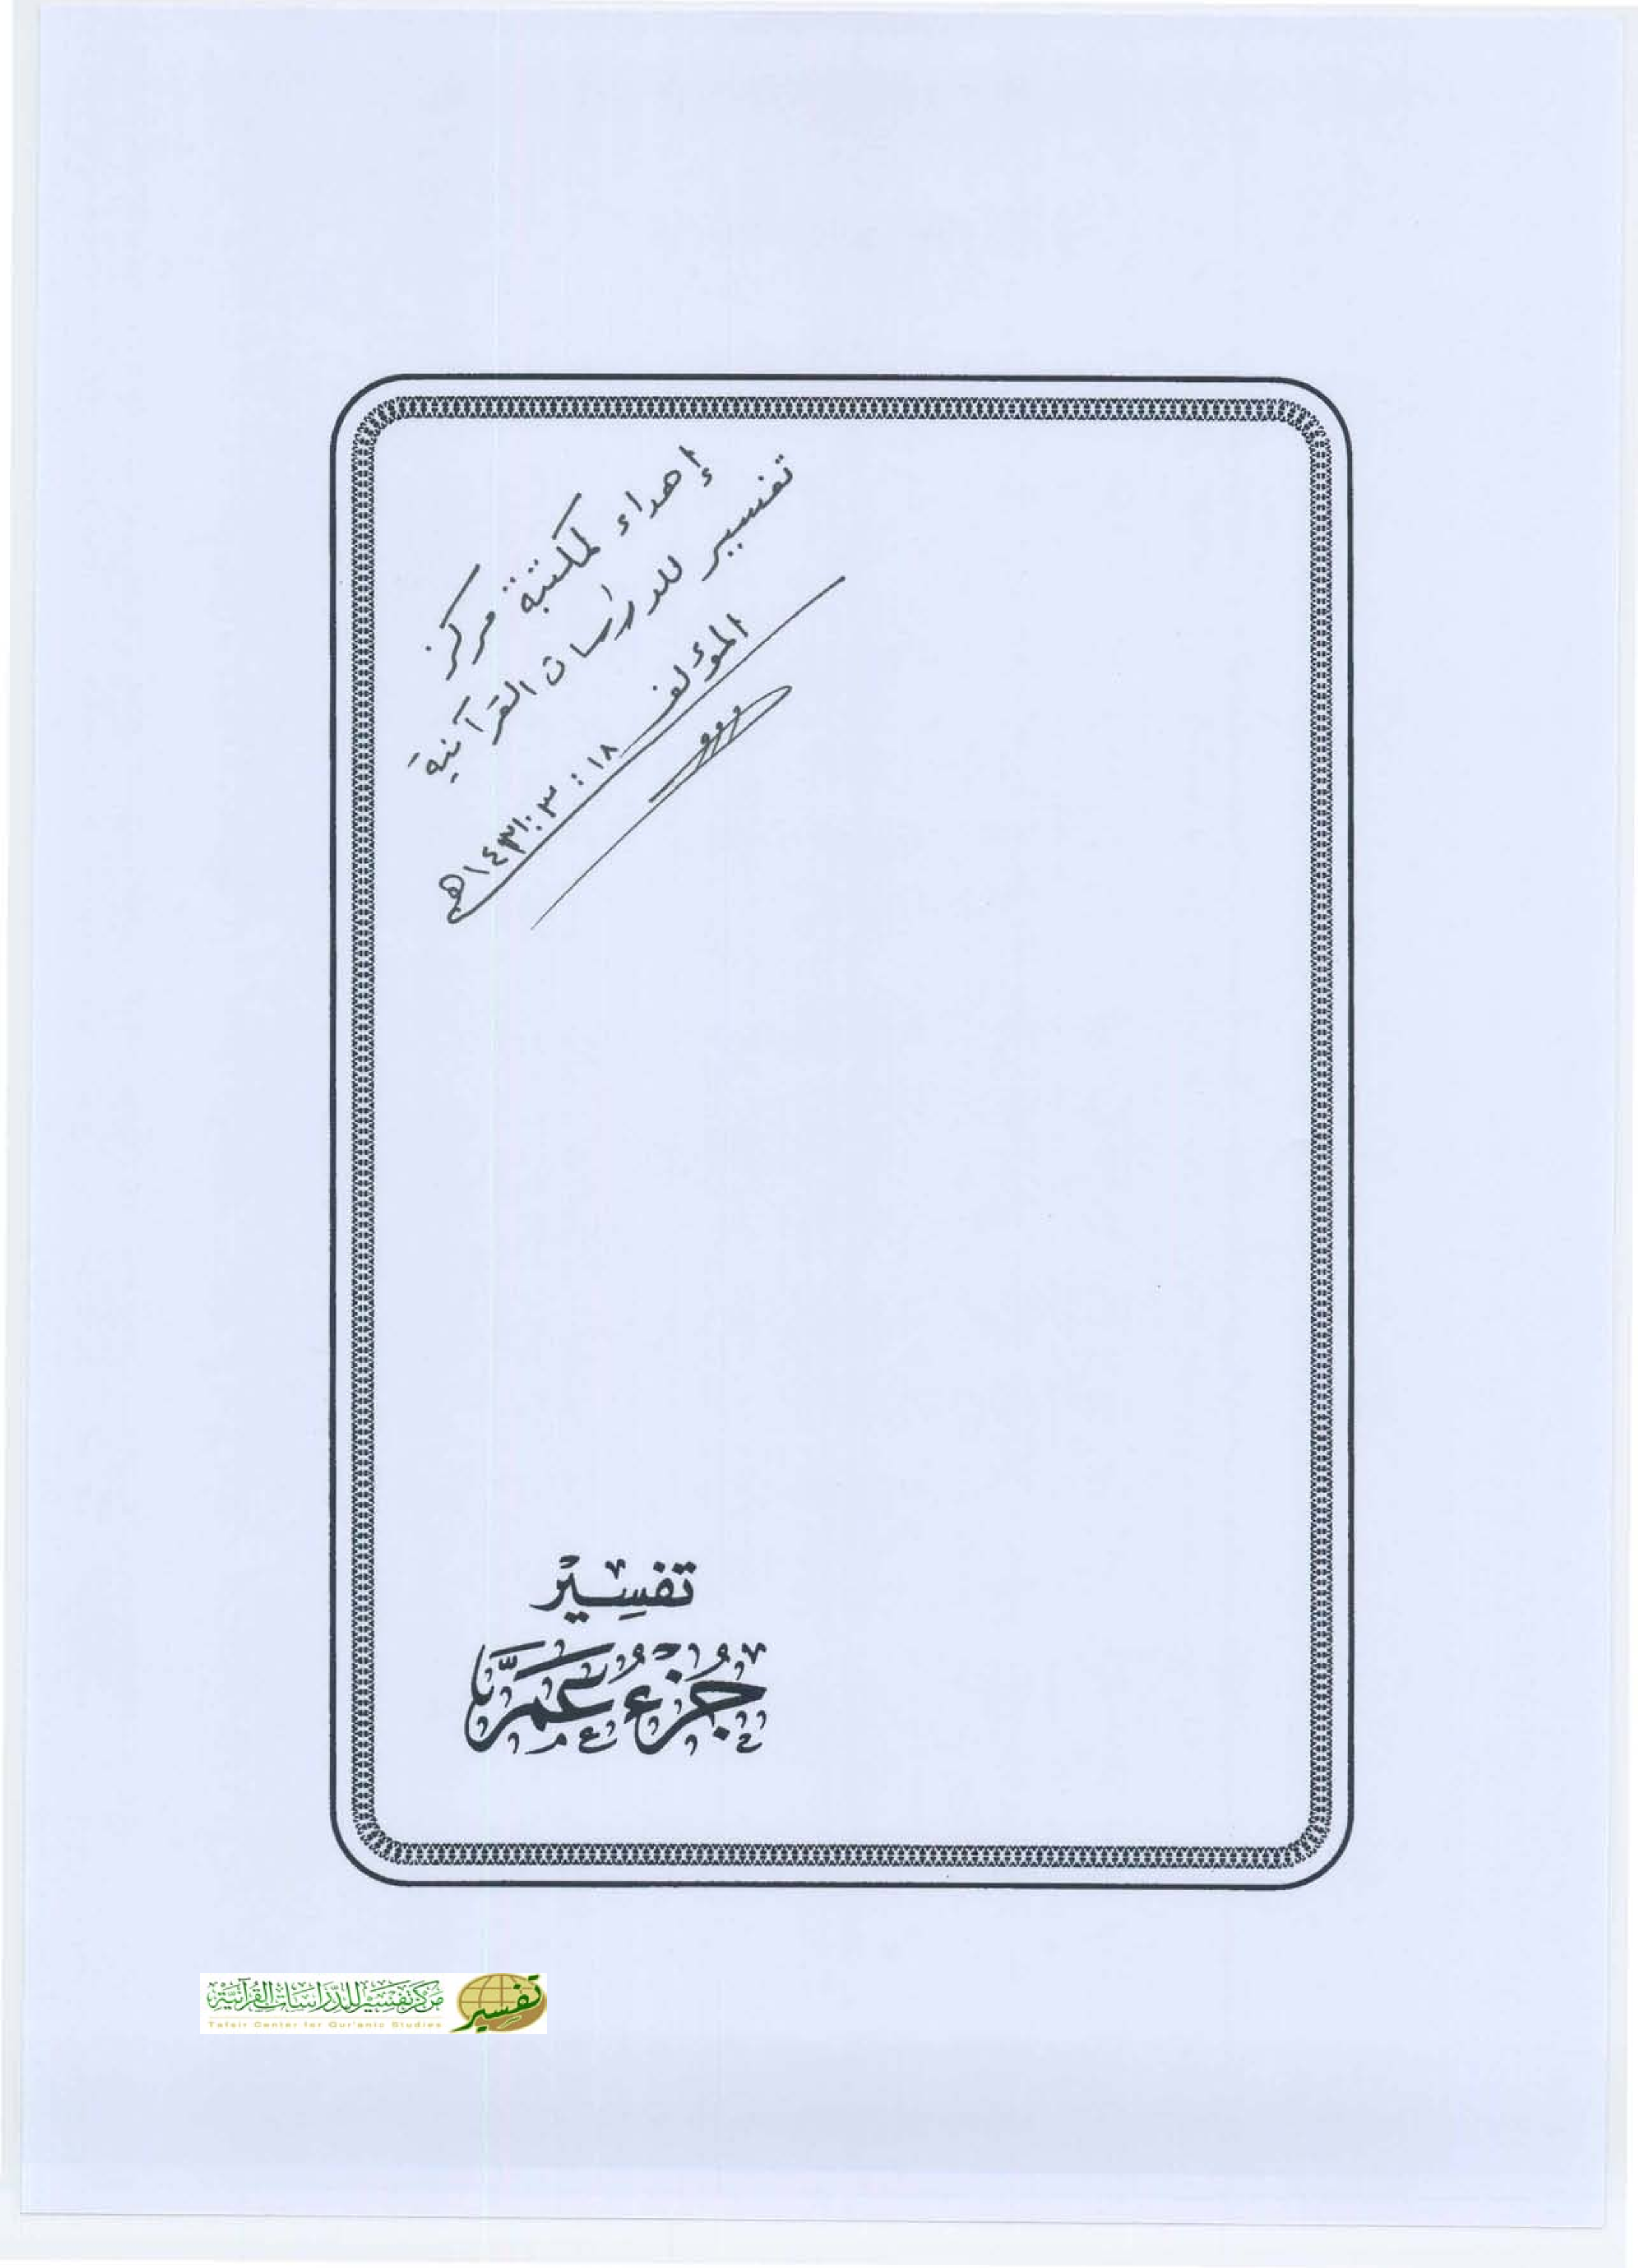 إهداء لمكتبة مركز
تفسير للدراسات القرآنية
المؤلف
١٨ : ٣ : ١٤٣١هـ
تَفسِيْر
جُزْءِ عَمَّ
مركز تفسير للدراسات القرآنية
Tafsir Center for Qur'anic Studies
تفسير